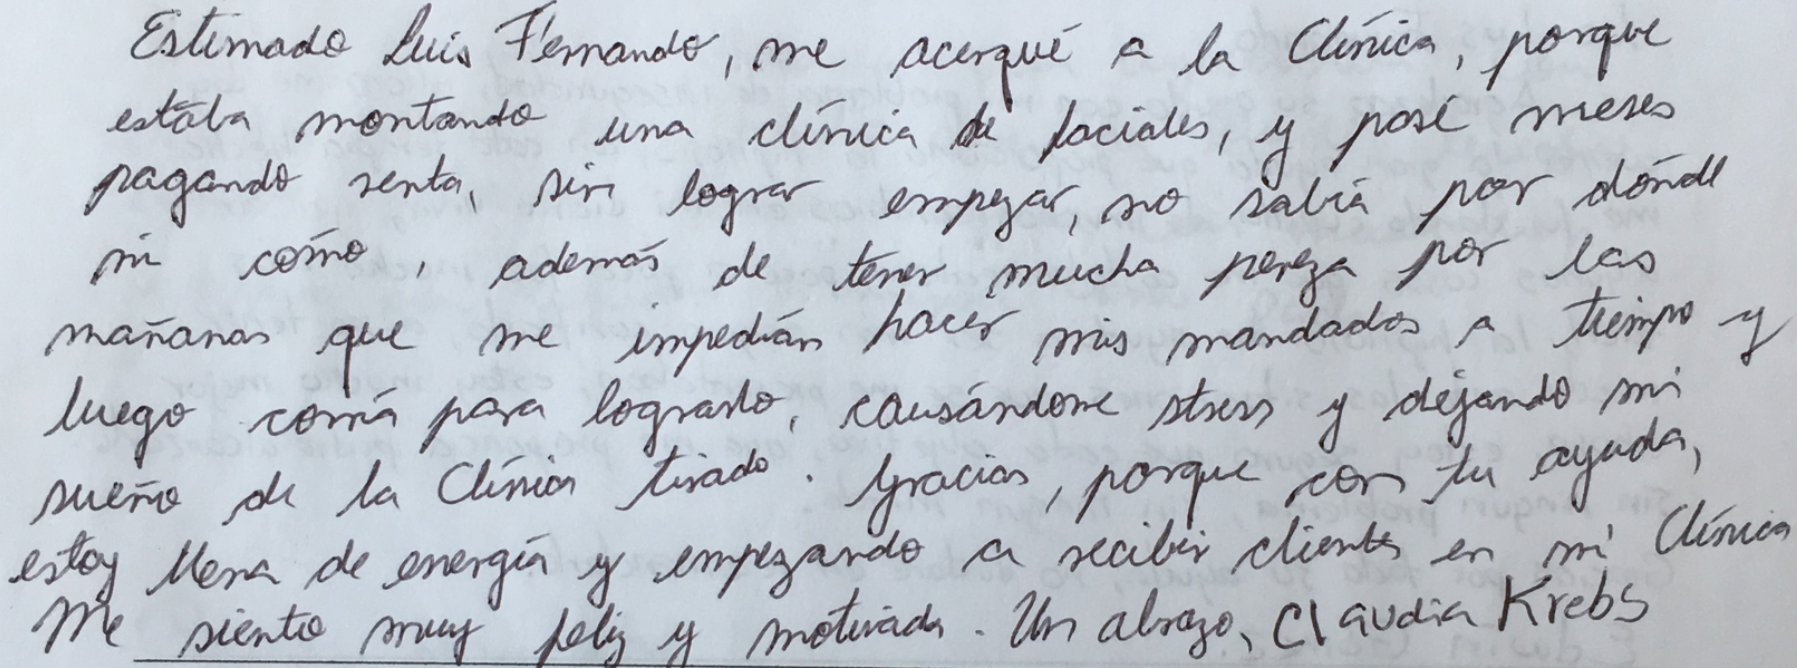 Estimado Luis Fernando, me acerqué a la Clínica, porque
estaba montando una clínica de faciales, y pasé meses
pagando renta, sin lograr empezar, no sabía por dónde
ni cómo, además de tener mucha pereza por las
mañanas que me impedían hacer mis mandados a tiempo y
luego corría para lograrlo, causándome stress y dejando mi
sueño de la Clínica tirado. Gracias, porque con tu ayuda,
estoy llena de energía y empezando a recibir clientes en mi Clínica
Me siento muy feliz y motivada. Un abrazo, Claudia Krebs